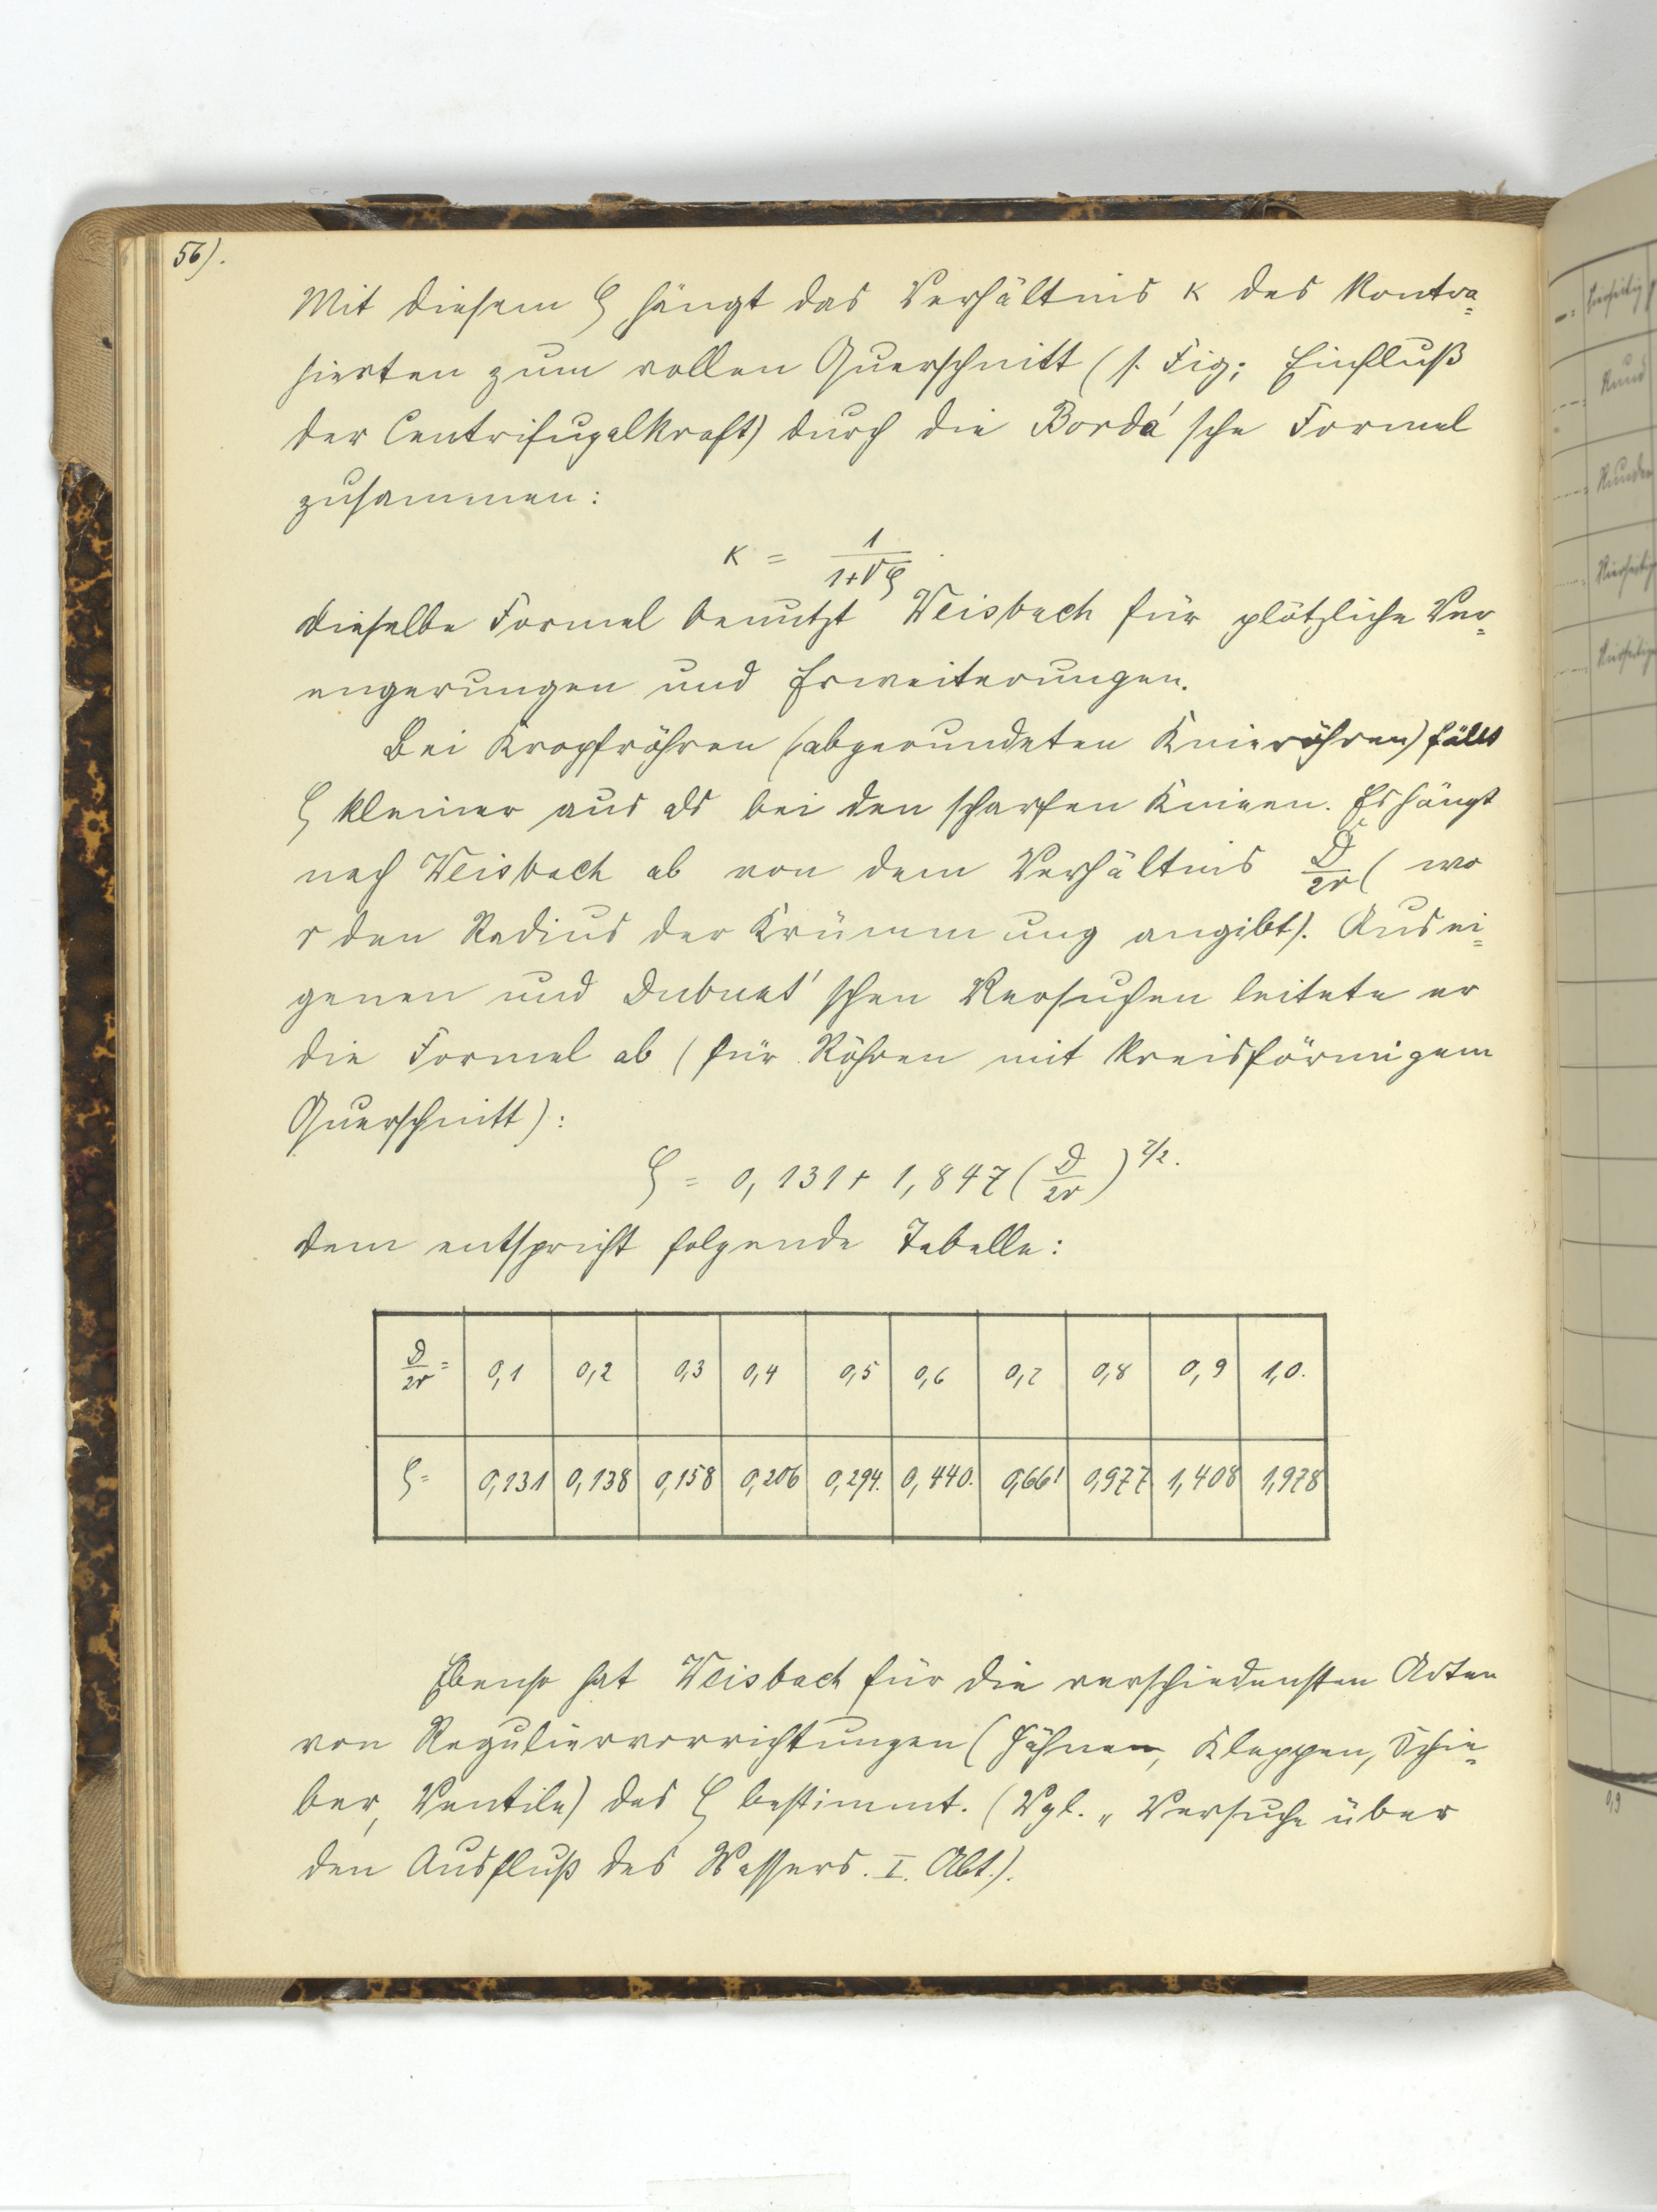 56).
Mit diesem ζ hängt das Verhältnis κ des Kontra=
hierten zum vollen Querschnitt (s. Fig; Einfluß
der Centrifugalkraft) durch die Borda'sche Formel
zusammen:
κ = 1/(1+√ζ)
dieselbe Formel benutzt Weisbach für plötzliche Ver=
engerungen und Erweiterungen.
Bei Kropfröhren (abgerundeten Knieröhren) fällt
ζ kleiner aus als bei den scharfen Knieen. Es hängt
nach Weisbach ab von dem Verhältnis D/2r (wo
r den Radius der Krümmung angibt). Aus ei=
genen und Dubuat'schen Versuchen leitete er
die Formel ab (für Röhren mit kreisförmigem
Querschnitt):
ζ = 0,131 + 1,847 (D/2r)^7/2.
dem entspricht folgende Tabelle:
D/2r = 0,1 0,2 0,3 0,4 0,5 0,6 0,7 0,8 0,9 1,0.
ζ = 0,131 0,138 0,158 0,206 0,294. 0,440. 0,661 0,977 1,408 1,978
Ebenso hat Weisbach für die verschiedensten Arten
von Reguliervorrichtungen (Hähnen, Klappen, Schie=
ber, Ventile) das ζ bestimmt. (Vgl. „Versuche über
den Ausfluß des Wassers. I. Abt.).
Rund
0,9